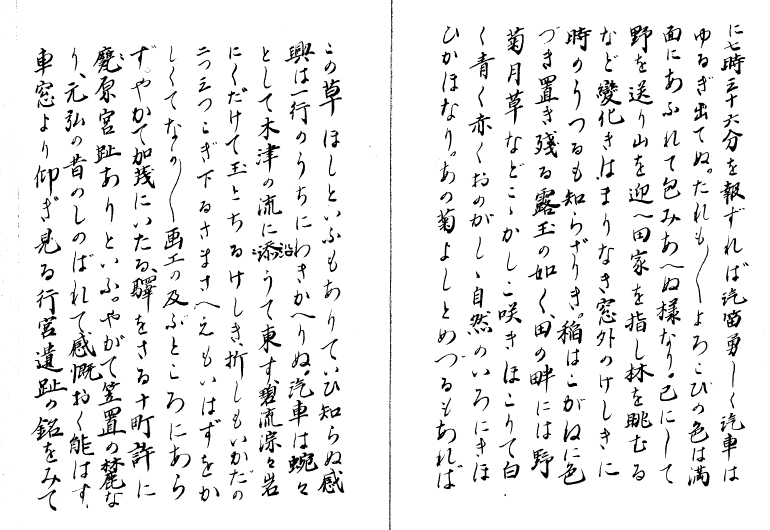 に七時三十六分を報ずれば汽笛勇しく汽車は
ゆるぎ出てぬ。たれも〳〵よろこびの色は満
面にあふれて包みあへぬ様なり。已にして
野を送り山を迎へ田家を指し林を眺むる
など変化きはまりなき窓外のけしきに
時のうつるも知らざりき。稲はこがねに色
づき置き残る露玉の如く、田の畔には野
菊月草などこゝかしこ咲きほこりて白
く青く赤くおのがしゝ自然のいろにきほ
ひかほなり。あの菊よしとめづるもあれば
この草ほしといふもありていひ知らぬ感
興は一行のうちにわきかへりぬ。汽車は蜿々
として木津の流に添沿うて東す、碧流淙々岩
にくだけて玉とちるけしき、折しもいかだの
二つ三つこぎ下るさまさへえもいはずをか
しくてなか〳〵画工の及ぶところにあら
ず。やがて加茂にいたる、驛をさる十町許に
甕原宮趾ありといふ。やがて笠置の麓な
り、元弘の昔のしのばれて感慨おく能はす、
車窓より仰ぎ見る行宮遺趾の銘をみて